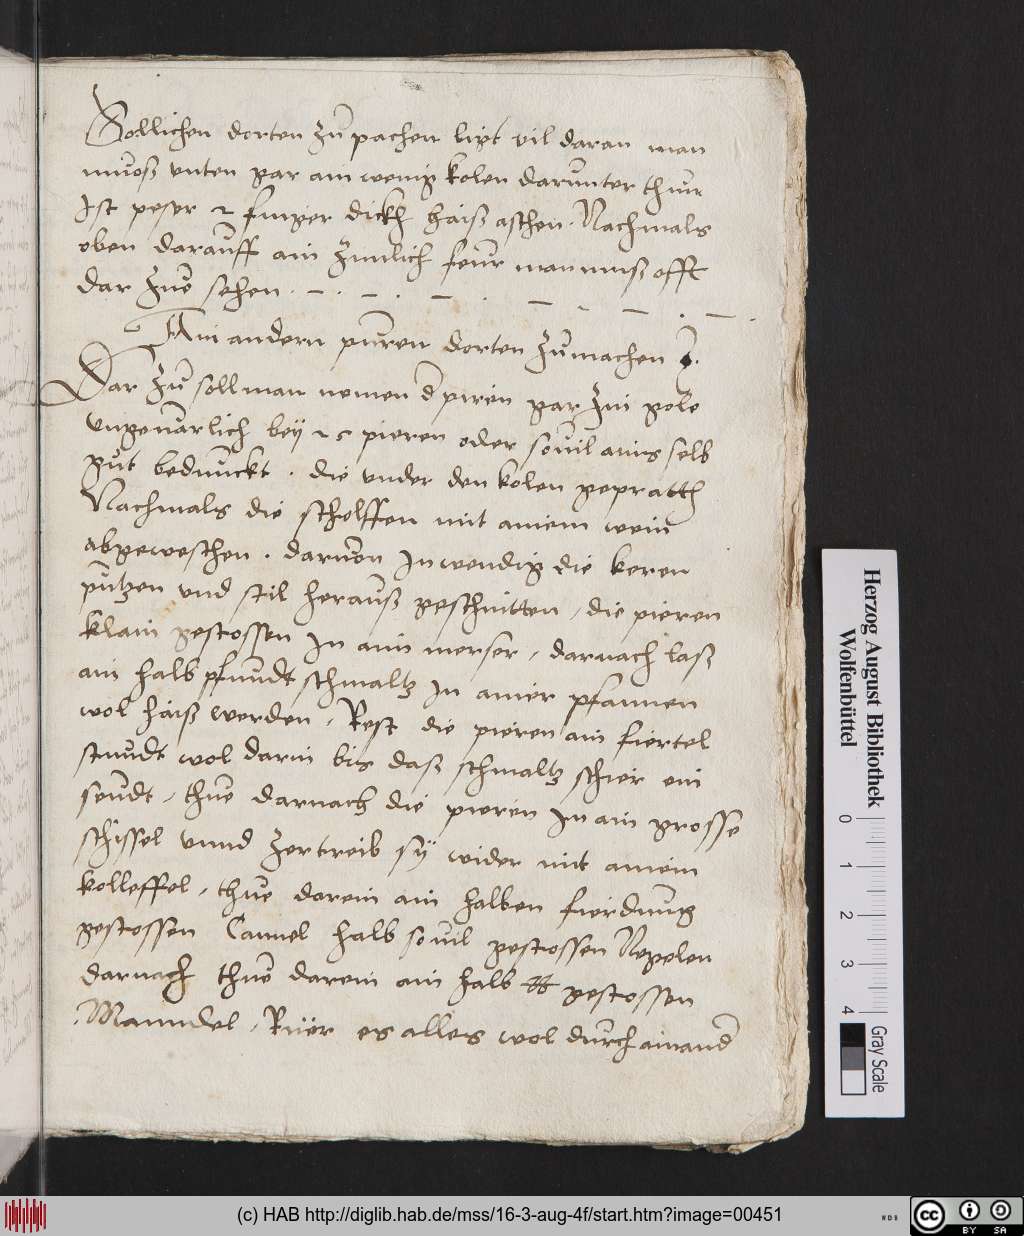 Sollichen dorten zů pachen ligt vil daran man
muoß vnten gar ain wenig kolen darunter thun
Ist peser 2 finger dickh haiß aschen. Nachmals
oben darauff ain zimlich feur man muß offt
dar zue sehen. – . – . – . – . – . – .
Ain andern puren dorten zů machen
Dar zů soll man nemen d piren gar zin gole
vngevarlich bey 25 pieren oder souil ains selb
gut bedunckt. die vnder den kolen gepratth
Nachmals die schelffen mit ainem wein
abgeweschen. daruon Inwendig die keren
putzen vnd stil herauß geschnitten, die pieren
klain gestossen In ain merser, darnach laß
ain halb pfundt schmaltz In ainer pfannen
wol haiß werden, Rest die pieren ain fiertel
stundt wol darin bis daß schmaltz schier ein
seudt, thue darnach die pieren In ain grosse
schissel vnnd zertreib sÿ wider mit ainem
kolleffel, thue darein ain halben fierdung
gestossen Cannel halb souil gestossen Negelen
darnach thue darein ain halb ℔ gestossen
Manndel, Rüer es alles wol durch ainand
Herzog August Bibliothek
Wolfenbüttel
0 1 2 3 4
Gray Scale
(c) HAB http://diglib.hab.de/mss/16-3-aug-4f/start.htm?image=00451
cc BY SA